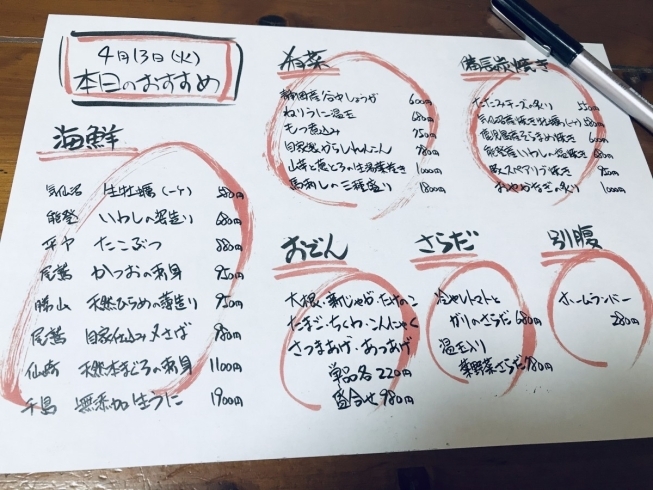 4月13日(火)
本日のおすすめ
海鮮
気仙沼 生牡蠣(一ヶ) 580円
能登 いわしの造り 680円
たこぶつ 880円
尾鷲 かつおの刺身 950円
勝山 天然ひらめの造り 950円
尾鷲 自家仕込み〆さば 980円
天然本まぐろの刺身 1100円
無添加生うに 1900円
静岡産谷中しょうが 600円
ねりうに温玉 680円
もつ煮込み 750円
自家製からしれんこん 780円
1000円
馬刺しの三種盛り 1800円
炭焼き
たたみチーズの炙り 550円
580円
そらまめ焼き 600円
能登産いわしの塩焼き 680円
豚スペアリブ焼き 950円
の炙り 1000円
おでん
大根・新じゃが・たけのこ
たまご・ちくわ・こんにゃく
さつまあげ・あつあげ
単品各220円
盛合せ980円
さらだ
冷やしトマトと
ガリのさらだ680円
温玉入り
葉野菜さらだ780円
別腹
ホームランバー
280円